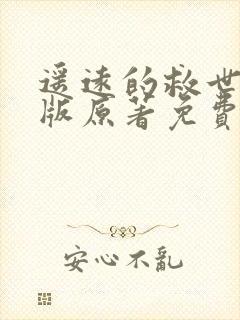 遥远的救世
版原著免費
安心不亂